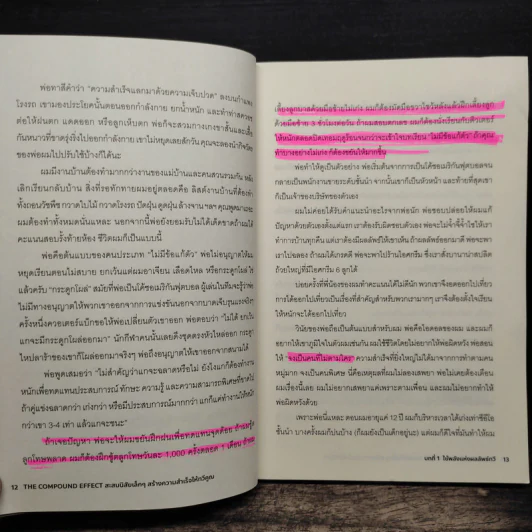 พ่อทาสีคำว่า “ความสำเร็จแลกมาด้วยความเจ็บปวด” ลงบนกำแพง
โรงรถ เขามองประโยคนั้นตอนออกกำลังกาย ยกน้ำหนัก และทำท่าสควอช
ต่อให้ฝนตก แดดออก หรือลูกเห็บตก พ่อก็จะสวมกางเกงขาสั้นและเสื้อ
กันหนาวที่ขาดรุ่งริ่งไปออกกำลังกาย เขาไม่หยุดเลยสักวัน คุณจะลองนำกิจวัตร
ของพ่อผมไปปรับใช้บ้างก็ได้นะ
ผมมีงานบ้านต้องทำมากกว่างานของแม่บ้านและคนสวนรวมกัน หลัง
เลิกเรียนกลับบ้าน สิ่งที่รอทักทายผมอยู่ตลอดคือ ลิสต์งานบ้านที่ต้อง
ทั้งถอนวัชพืช กวาดใบไม้ กวาดโรงรถ ปัดฝุ่น ดูดฝุ่น ล้างจาน ฯลฯ คุณพูดมาเถอะ
ผมต้องทำทั้งหมดนั่นแหละ นอกจากนี้พ่อยังยอมรับไม่ได้เด็ดขาดถ้าผม
คะแนนสอบรั้งท้ายห้อง ชีวิตผมก็เป็นแบบนี้
พ่อคือต้นแบบของคนประเภท “ไม่มีข้อแก้ตัว” พ่อไม่อนุญาตให้ผม
หยุดเรียนตอนไม่สบาย ยกเว้นแค่ผมอาเจียน เลือดไหล หรือกระดูกโผล่ ใช่
แล้วครับ “กระดูกโผล่” สมัยที่พ่อเป็นโค้ชอเมริกันฟุตบอล ผู้เล่นในทีมจะรู้ว่าพ่อ
ไม่มีทางอนุญาตให้พวกเขาออกจากการแข่งขันนอกจากบาดเจ็บรุนแรงจริงๆ
ครั้งหนึ่งควอเตอร์แบ็กขอให้พ่อเปลี่ยนตัวเขาออก พ่อตอบว่า “ไม่ได้ ยกเว้น
แกจะมีกระดูกโผล่ออกมา” นักกีฬาคนนั้นเลยดึงชุดตรงหัวไหล่ออก กระดูก
ไหปลาร้าของเขาก็โผล่ออกมาจริงๆ พ่อถึงอนุญาตให้เขาออกจากสนามได้
พ่อพูดเสมอว่า “ไม่สำคัญว่าแกจะฉลาดหรือไม่ ยังไงแกก็ต้องทำงาน
หนักเพื่อทดแทนประสบการณ์ ทักษะ ความรู้ และความสามารถพิเศษที่ขาดไป
ถ้าคู่แข่งฉลาดกว่า เก่งกว่า หรือมีประสบการณ์มากกว่า แกก็แค่ทำงานให้หนัก
กว่าเขา 3-4 เท่า แล้วแกจะชนะ”
ถ้าเจอปัญหา พ่อจะให้ผมขยันฝึกฝนเพื่อทดแทนจุดด้อย ถ้าผมชู้ต
ลูกโทษพลาด ผมก็ต้องฝึกชู้ตลูกโทษวันละ 1,000 ครั้งตลอด 1 เดือน ถ้าผม
12 THE COMPOUND EFFECT สะสมนิสัยเล็กๆ สร้างความสำเร็จให้ทวีคูณ
เลี้ยงลูกบาสด้วยมือซ้ายไม่เก่ง ผมก็ต้องมัดมือขวาไขว้หลังแล้วฝึกเลี้ยงลูก
ด้วยมือซ้าย 3 ชั่วโมงต่อวัน ถ้าผมสอบตกเลข ผมก็ต้องนั่งเรียนกับติวเตอร์
ให้หนักตลอดปิดเทอมฤดูร้อนจนกว่าจะเข้าใจบทเรียน “ไม่มีข้อแก้ตัว” ถ้าคุณ
ทำบางอย่างไม่เก่ง ก็ต้องขยันให้มากขึ้น
พ่อทำให้ดูเป็นตัวอย่าง พ่อเริ่มต้นจากการเป็นโค้ชอเมริกันฟุตบอลจน
กลายเป็นพนักงานขายระดับชั้นนำ จากนั้นเขาก็เป็นหัวหน้า และท้ายที่สุดเขา
ก็เป็นเจ้าของบริษัทของตัวเอง
ผมไม่ค่อยได้รับคำแนะนำอะไรจากพ่อนัก พ่อชอบปล่อยให้ผมแก้
ปัญหาด้วยตัวเองตั้งแต่แรก เราต้องรับผิดชอบตัวเอง พ่อจะไม่จ้ำจี้จ้ำไชให้เรา
ทำการบ้านทุกคืน แต่เราต้องมีผลลัพธ์ให้เขาเห็น ถ้าผลลัพธ์ออกมาดี พ่อจะพา
เราไปฉลอง ถ้าผมได้เกรดดี พ่อจะพาไปร้านไอศกรีม ซึ่งเราสั่งบานาน่าสปลิต
ถ้วยใหญ่ที่มีไอศกรีม 6 ลูกได้
บ่อยครั้งที่พี่น้องของผมทำคะแนนได้ไม่ดีนัก พวกเขาจึงอดออกไปเที่ยว
การได้ออกไปเที่ยวเป็นเรื่องที่สำคัญสำหรับพวกเรามากๆ เราจึงต้องตั้งใจเรียน
ให้หนักจะได้ออกไปเที่ยว
วินัยของพ่อถือเป็นต้นแบบสำหรับผม พ่อคือไอดอลของผม และผมก็
อยากให้เขาภูมิใจในตัวผมเช่นกัน ผมใช้ชีวิตโดยไม่อยากให้พ่อผิดหวัง พ่อสอน
ให้ “จงเป็นคนที่ไม่ตามใคร ความสำเร็จที่ยิ่งใหญ่ไม่ได้มาจากการทำตามคน
หมู่มาก จงเป็นคนพิเศษ นี่คือเหตุผลที่ผมไม่ลองเสพยา พ่อไม่เคยต้องเตือน
ผมเรื่องนี้เลย ผมไม่อยากเสพยาแค่เพราะตามเพื่อน และผมไม่อยากทำให้
พ่อผิดหวังด้วย
เพราะพ่อนี่แหละ ตอนผมอายุแค่ 12 ปี ผมก็บริหารเวลาได้เก่งเท่าซีอีโอ
ชั้นนำ บางครั้งผมก็บ่นบ้าง (ก็ผมยังเป็นเด็กอยู่นะ) แต่ผมก็ดีใจที่มีผมได้เปรียบ
บทที่ 1 ใช้พลังแห่งผลลัพธ์ทวี 13